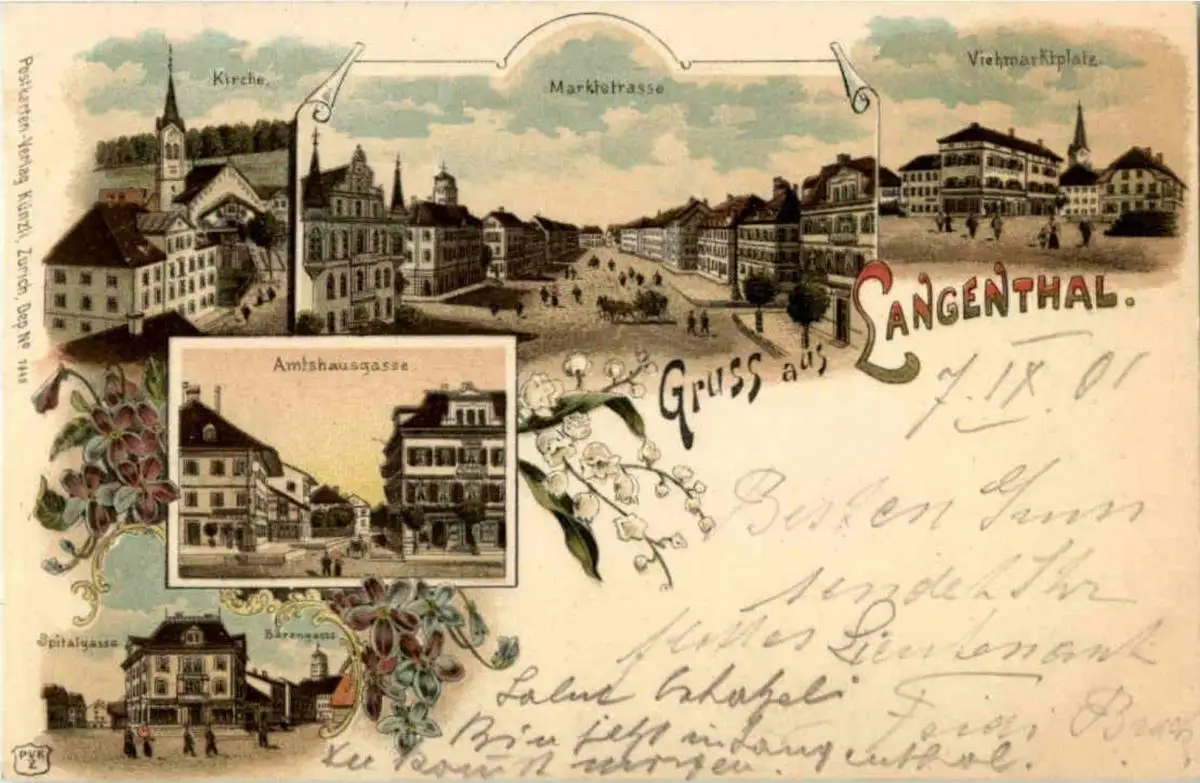 Postkarten-Verlag Künzli, Zürich, Dep. No 1848
Kirche.
Marktstrasse
Viehmarktplatz.
Gruss aus LANGENTHAL.
Amtshausgasse
Spitalgasse
Bärengasse
PVK
Z
7. IX. 01
Besten Gruss
sendet Ihr
flottes Lieutenant
Salut
Bin jetzt in Langenthal.
kommt morgen.